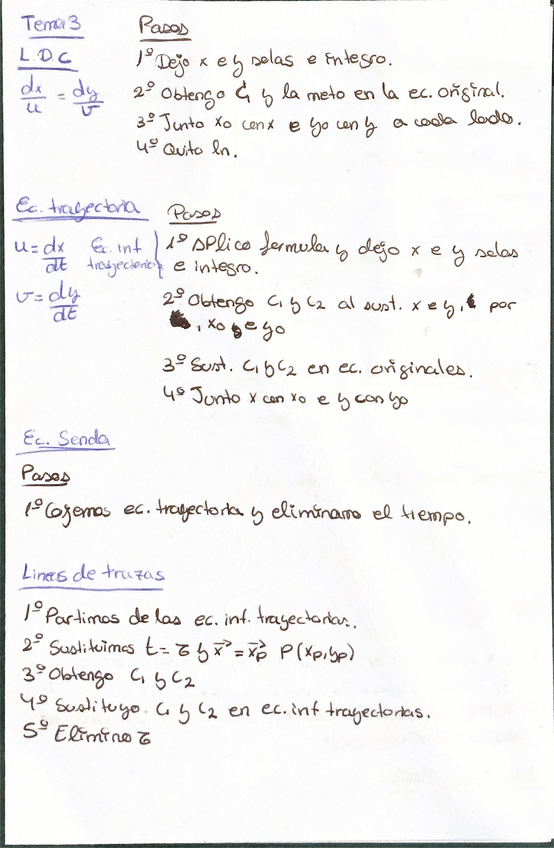 Tema 3
Pasos
L.D.C
dx/u = dy/v
1º Dejo x e y solas e integro.
2º Obtengo C1 y la meto en la ec. original.
3º Junto xo con x e yo con y a cada lado.
4º Quito ln.
Ec. trayectoria
Pasos
u = dx/dt
Ec. int trayectorias
v = dy/dt
1º Aplico formula y dejo x e y solas
e integro.
2º Obtengo C1 y C2 al sust. x e y, por
, xo e yo
3º Sust. C1 y C2 en ec. originales.
4º Junto x con xo e y con yo
Ec. Senda
Pasos
1º Cojemos ec. trayectoria y eliminamo el tiempo.
Lineas de trazas
1º Partimos de las ec. int. trayectorias.
2º Sustituimos t = τ y x⃗ = x⃗p P(xp, yp)
3º Obtengo C1 y C2
4º Sustituyo C1 y C2 en ec. inf trayectorias.
5º Elimino τ